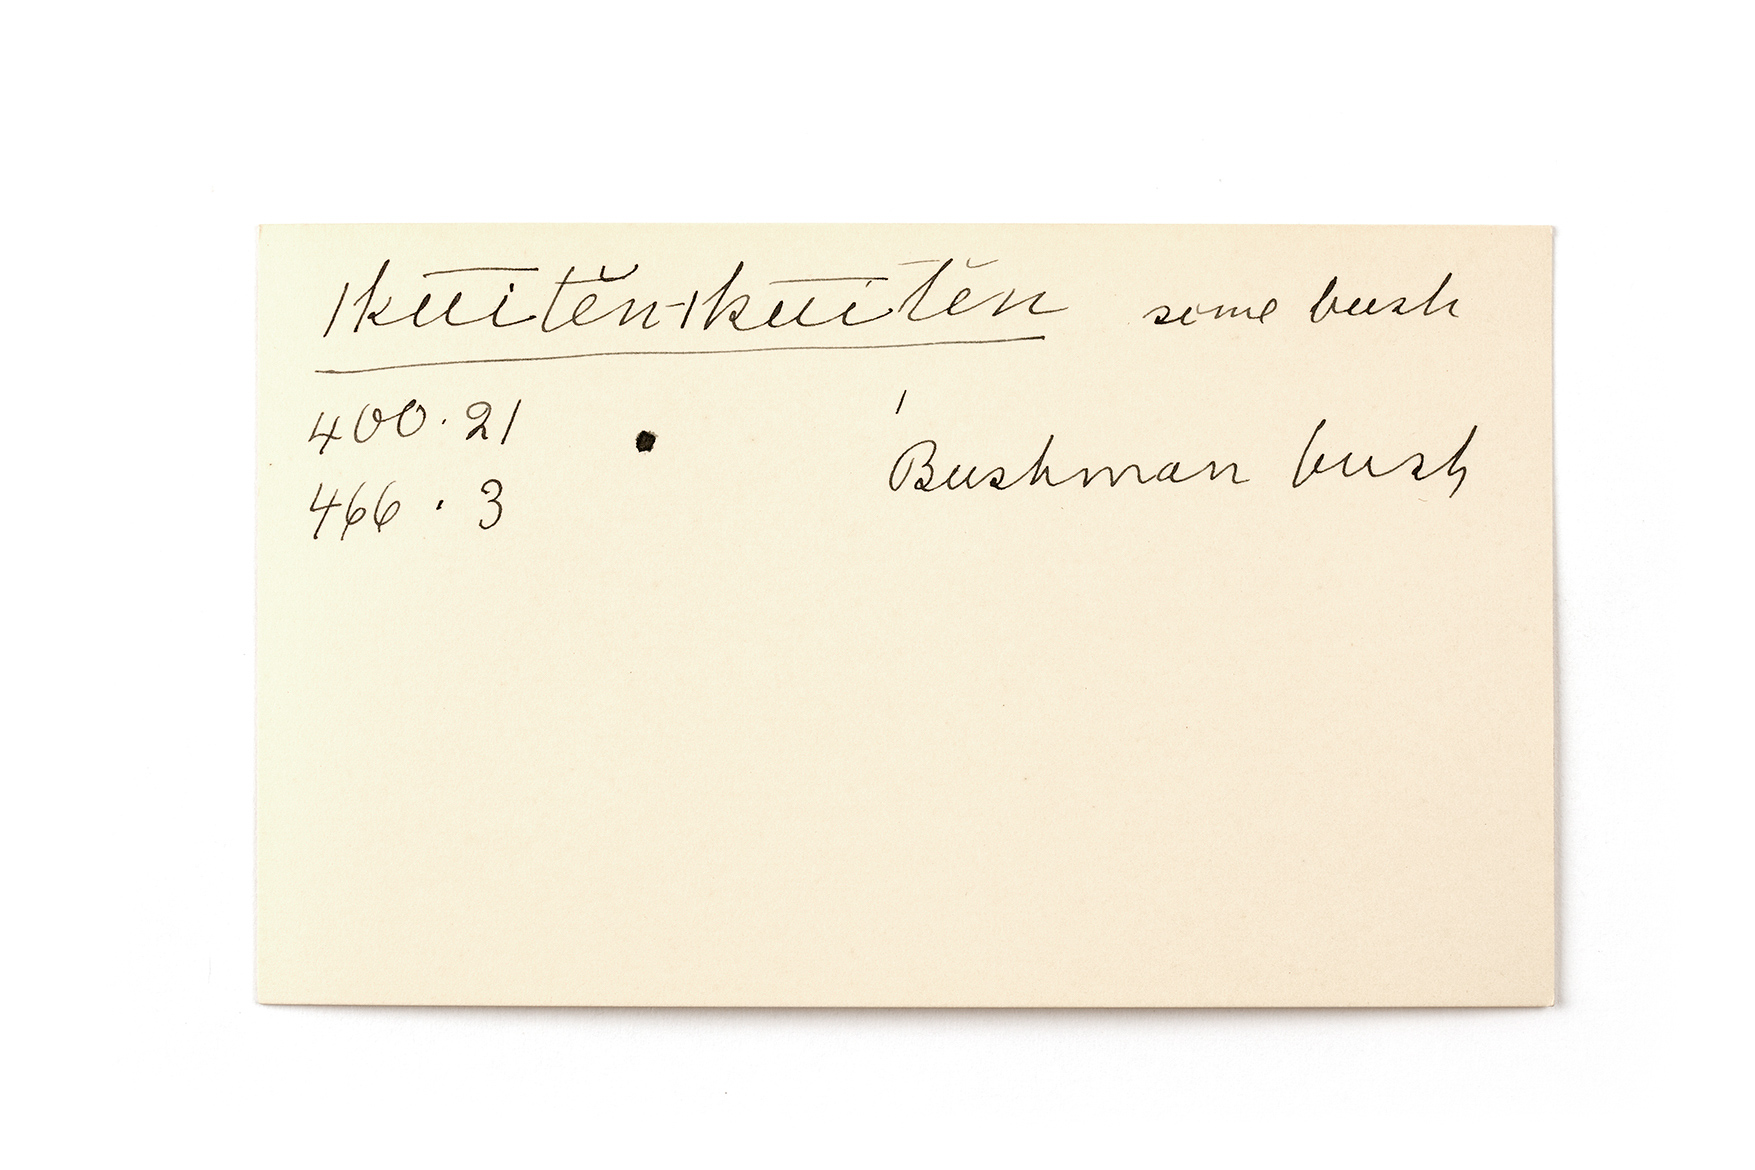 |ku̅i̅tĕn-|ku̅i̅tĕn some bush
400.21
Bushman bush
466.3